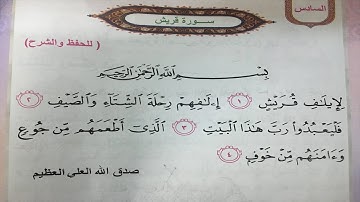 السادس
سورة قريش
( للحفظ والشرح )
بِسْمِ اللَّهِ الرَّحْمَٰنِ الرَّحِيمِ
لِإِيلَٰفِ قُرَيْشٍ ١ إِۦلَٰفِهِمْ رِحْلَةَ الشِّتَآءِ وَالصَّيْفِ ٢
فَلْيَعْبُدُوا۟ رَبَّ هَٰذَا الْبَيْتِ ٣ الَّذِىٓ أَطْعَمَهُم مِّن جُوعٍ
وَءَامَنَهُم مِّنْ خَوْفٍۭ ٤
صدق الله العلي العظيم